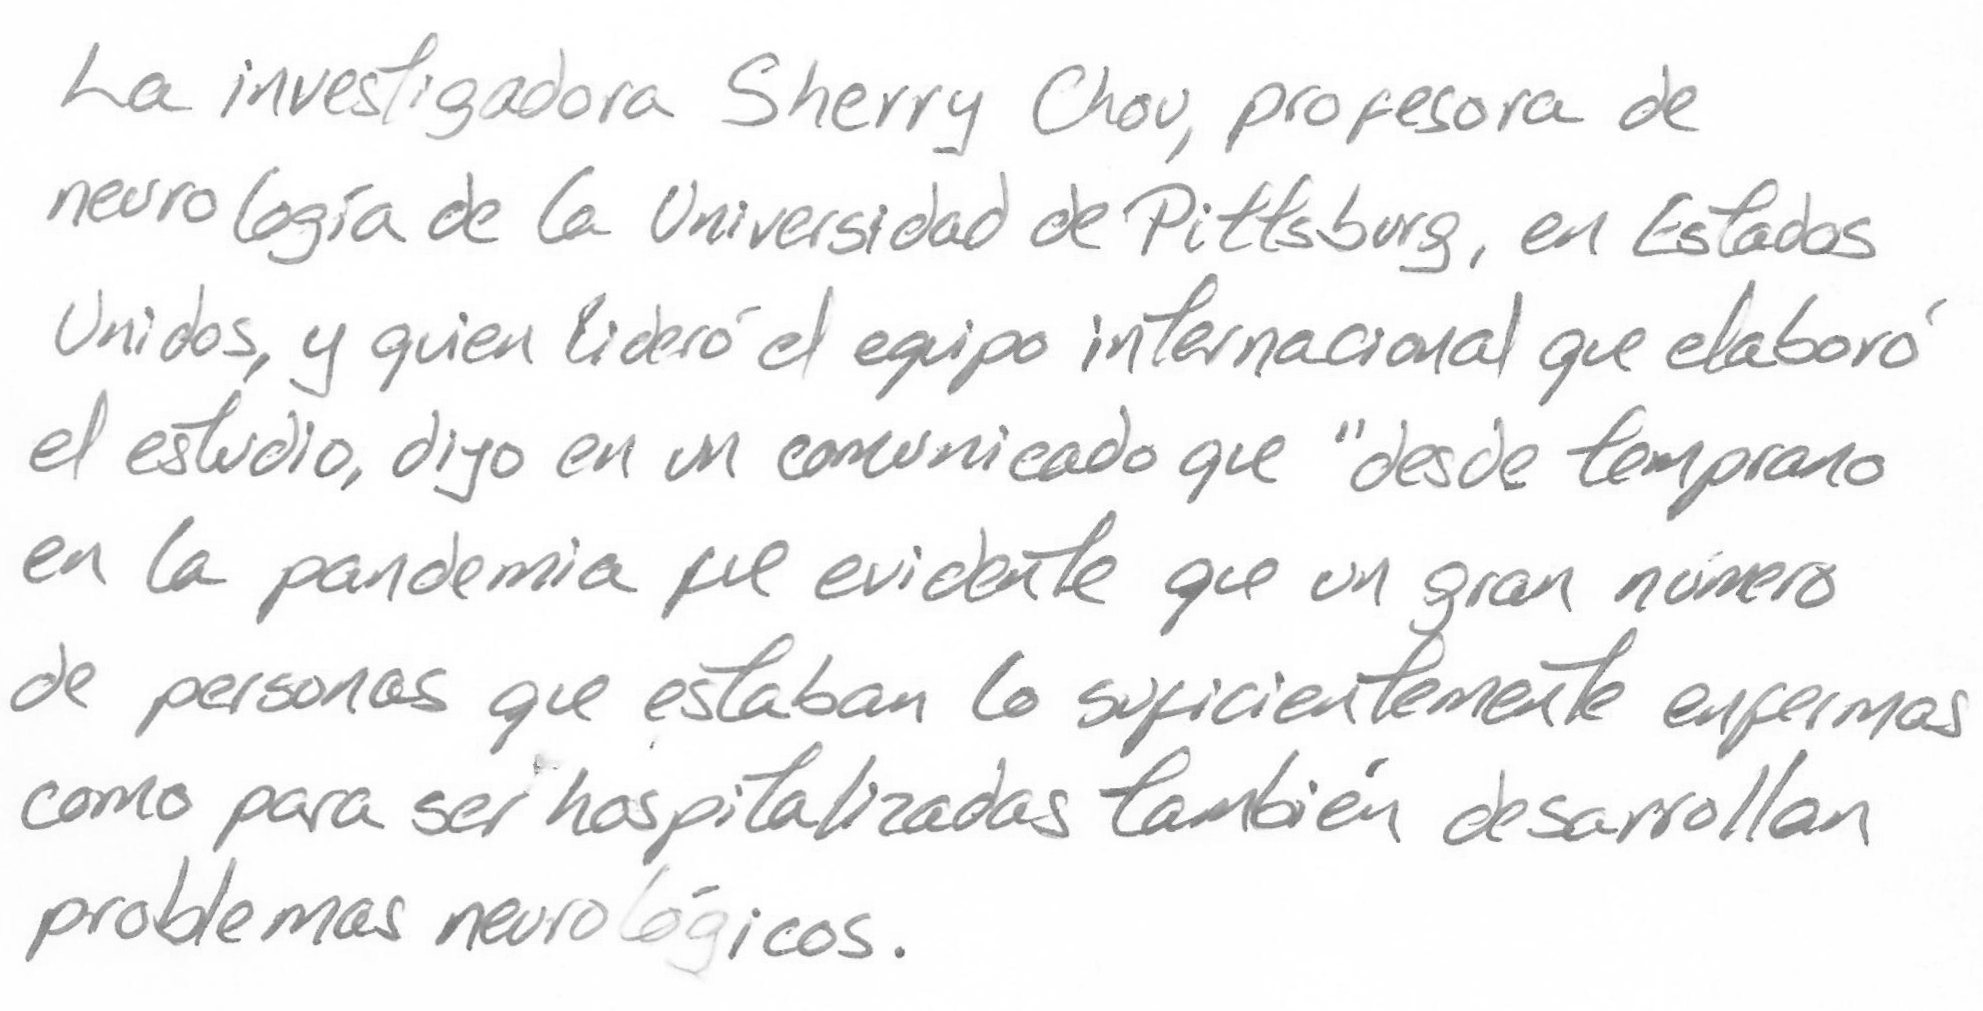 La investigadora Sherry Chou, profesora de
neurología de la Universidad de Pittsburg, en Estados
Unidos, y quien lideró el equipo internacional que elaboró
el estudio, dijo en un comunicado que "desde temprano
en la pandemia fue evidente que un gran número
de personas que estaban lo suficientemente enfermas
como para ser hospitalizadas también desarrollan
problemas neurológicos.